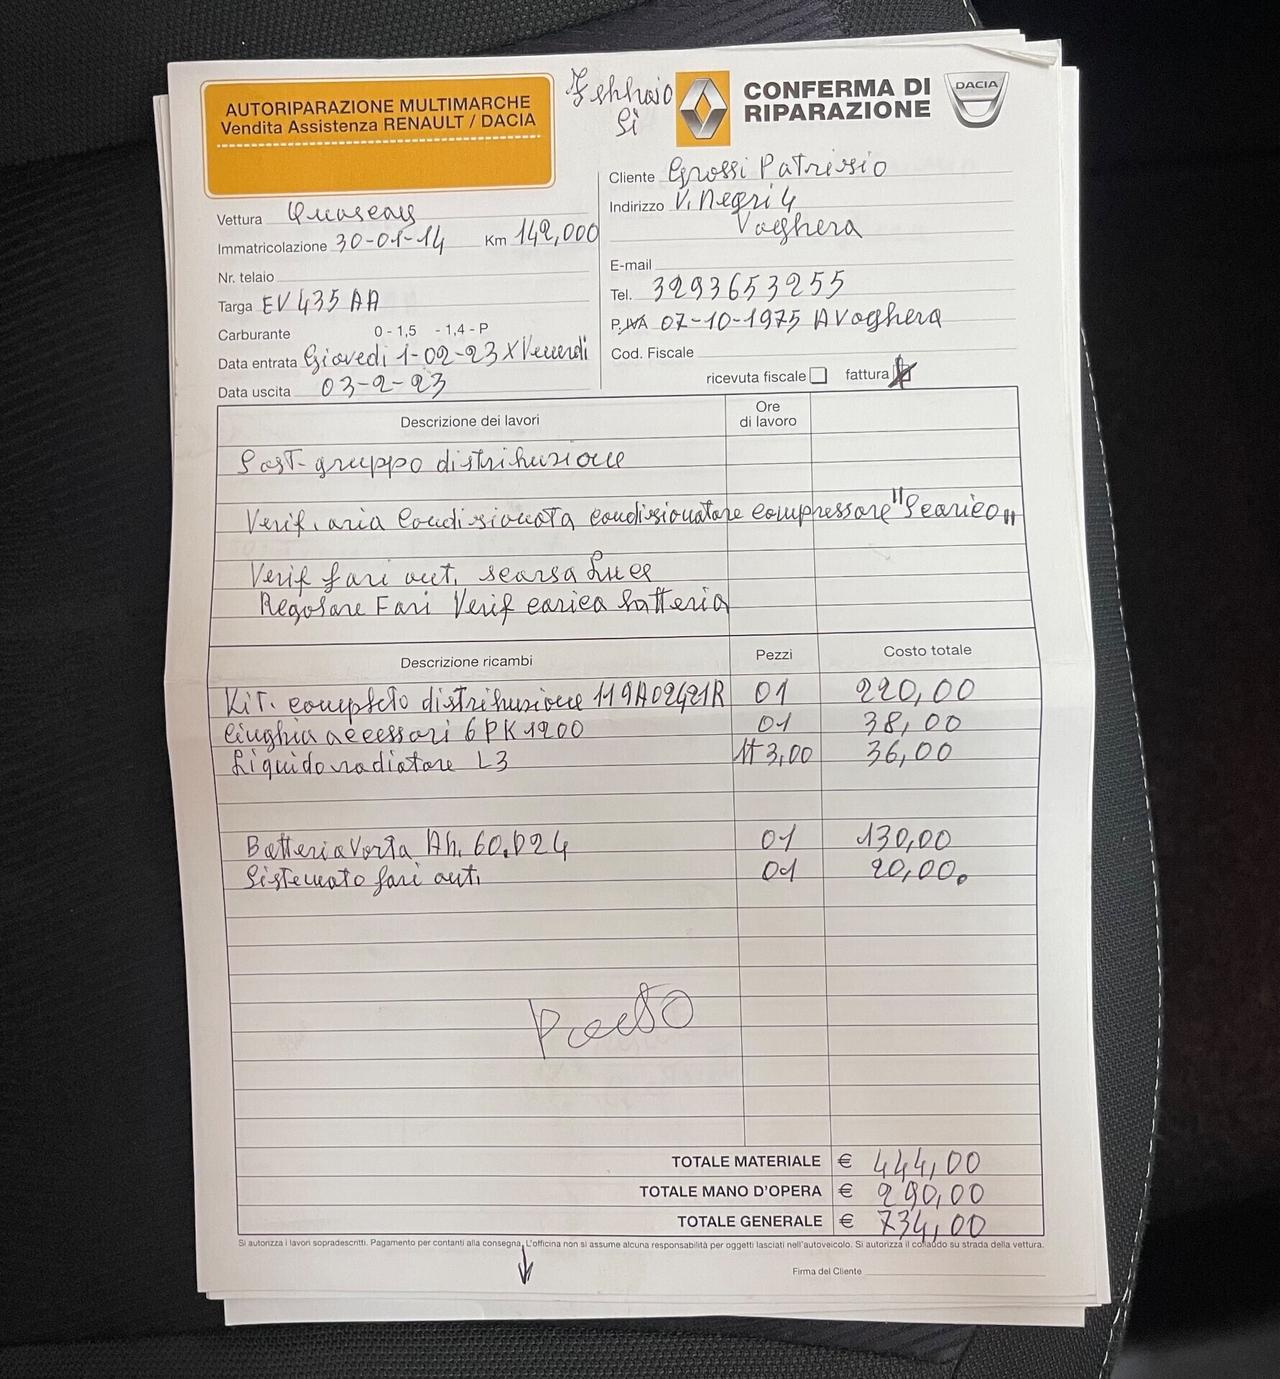 AUTORIPARAZIONE MULTIMARCHE
Vendita Assistenza RENAULT / DACIA
Febbraio
Si
CONFERMA DI
RIPARAZIONE
DACIA
Cliente Grossi Patrizio
Indirizzo V. Negri 4
Voghera
E-mail
Tel. 3293653255
P. IVA 07-10-1975 A Voghera
Cod. Fiscale
ricevuta fiscale fattura
Vettura
Immatricolazione 30-01-14 Km 142,000
Nr. telaio
Targa EV435AA
Carburante 0 - 1,5 - 1,4 - P
Data entrata Giovedi 1-02-23 X Venerdi
Data uscita 03-2-23
Descrizione dei lavori Ore di lavoro
Sost. gruppo distribuzione
Verif. aria condizionata condizionatore compressore "Scarico"
Verif fari ant. scarsa Luce
Regolare Fari Verif carica batteria
Descrizione ricambi Pezzi Costo totale
Kit. completo distribuzione 119A02421R 01 220,00
Cinghia accessori 6PK1200 01 38,00
Liquido radiatore L3 lt 3,00 36,00
Batteria Varta Ah. 60.D24 01 130,00
Sistemato fari ant. 01 20,00.
TOTALE MATERIALE € 444,00
TOTALE MANO D'OPERA € 290,00
TOTALE GENERALE € 734,00
Si autorizza i lavori sopradescritti. Pagamento per contanti alla consegna. L'officina non si assume alcuna responsabilità per oggetti lasciati nell'autoveicolo. Si autorizza il collaudo su strada della vettura.
Firma del Cliente